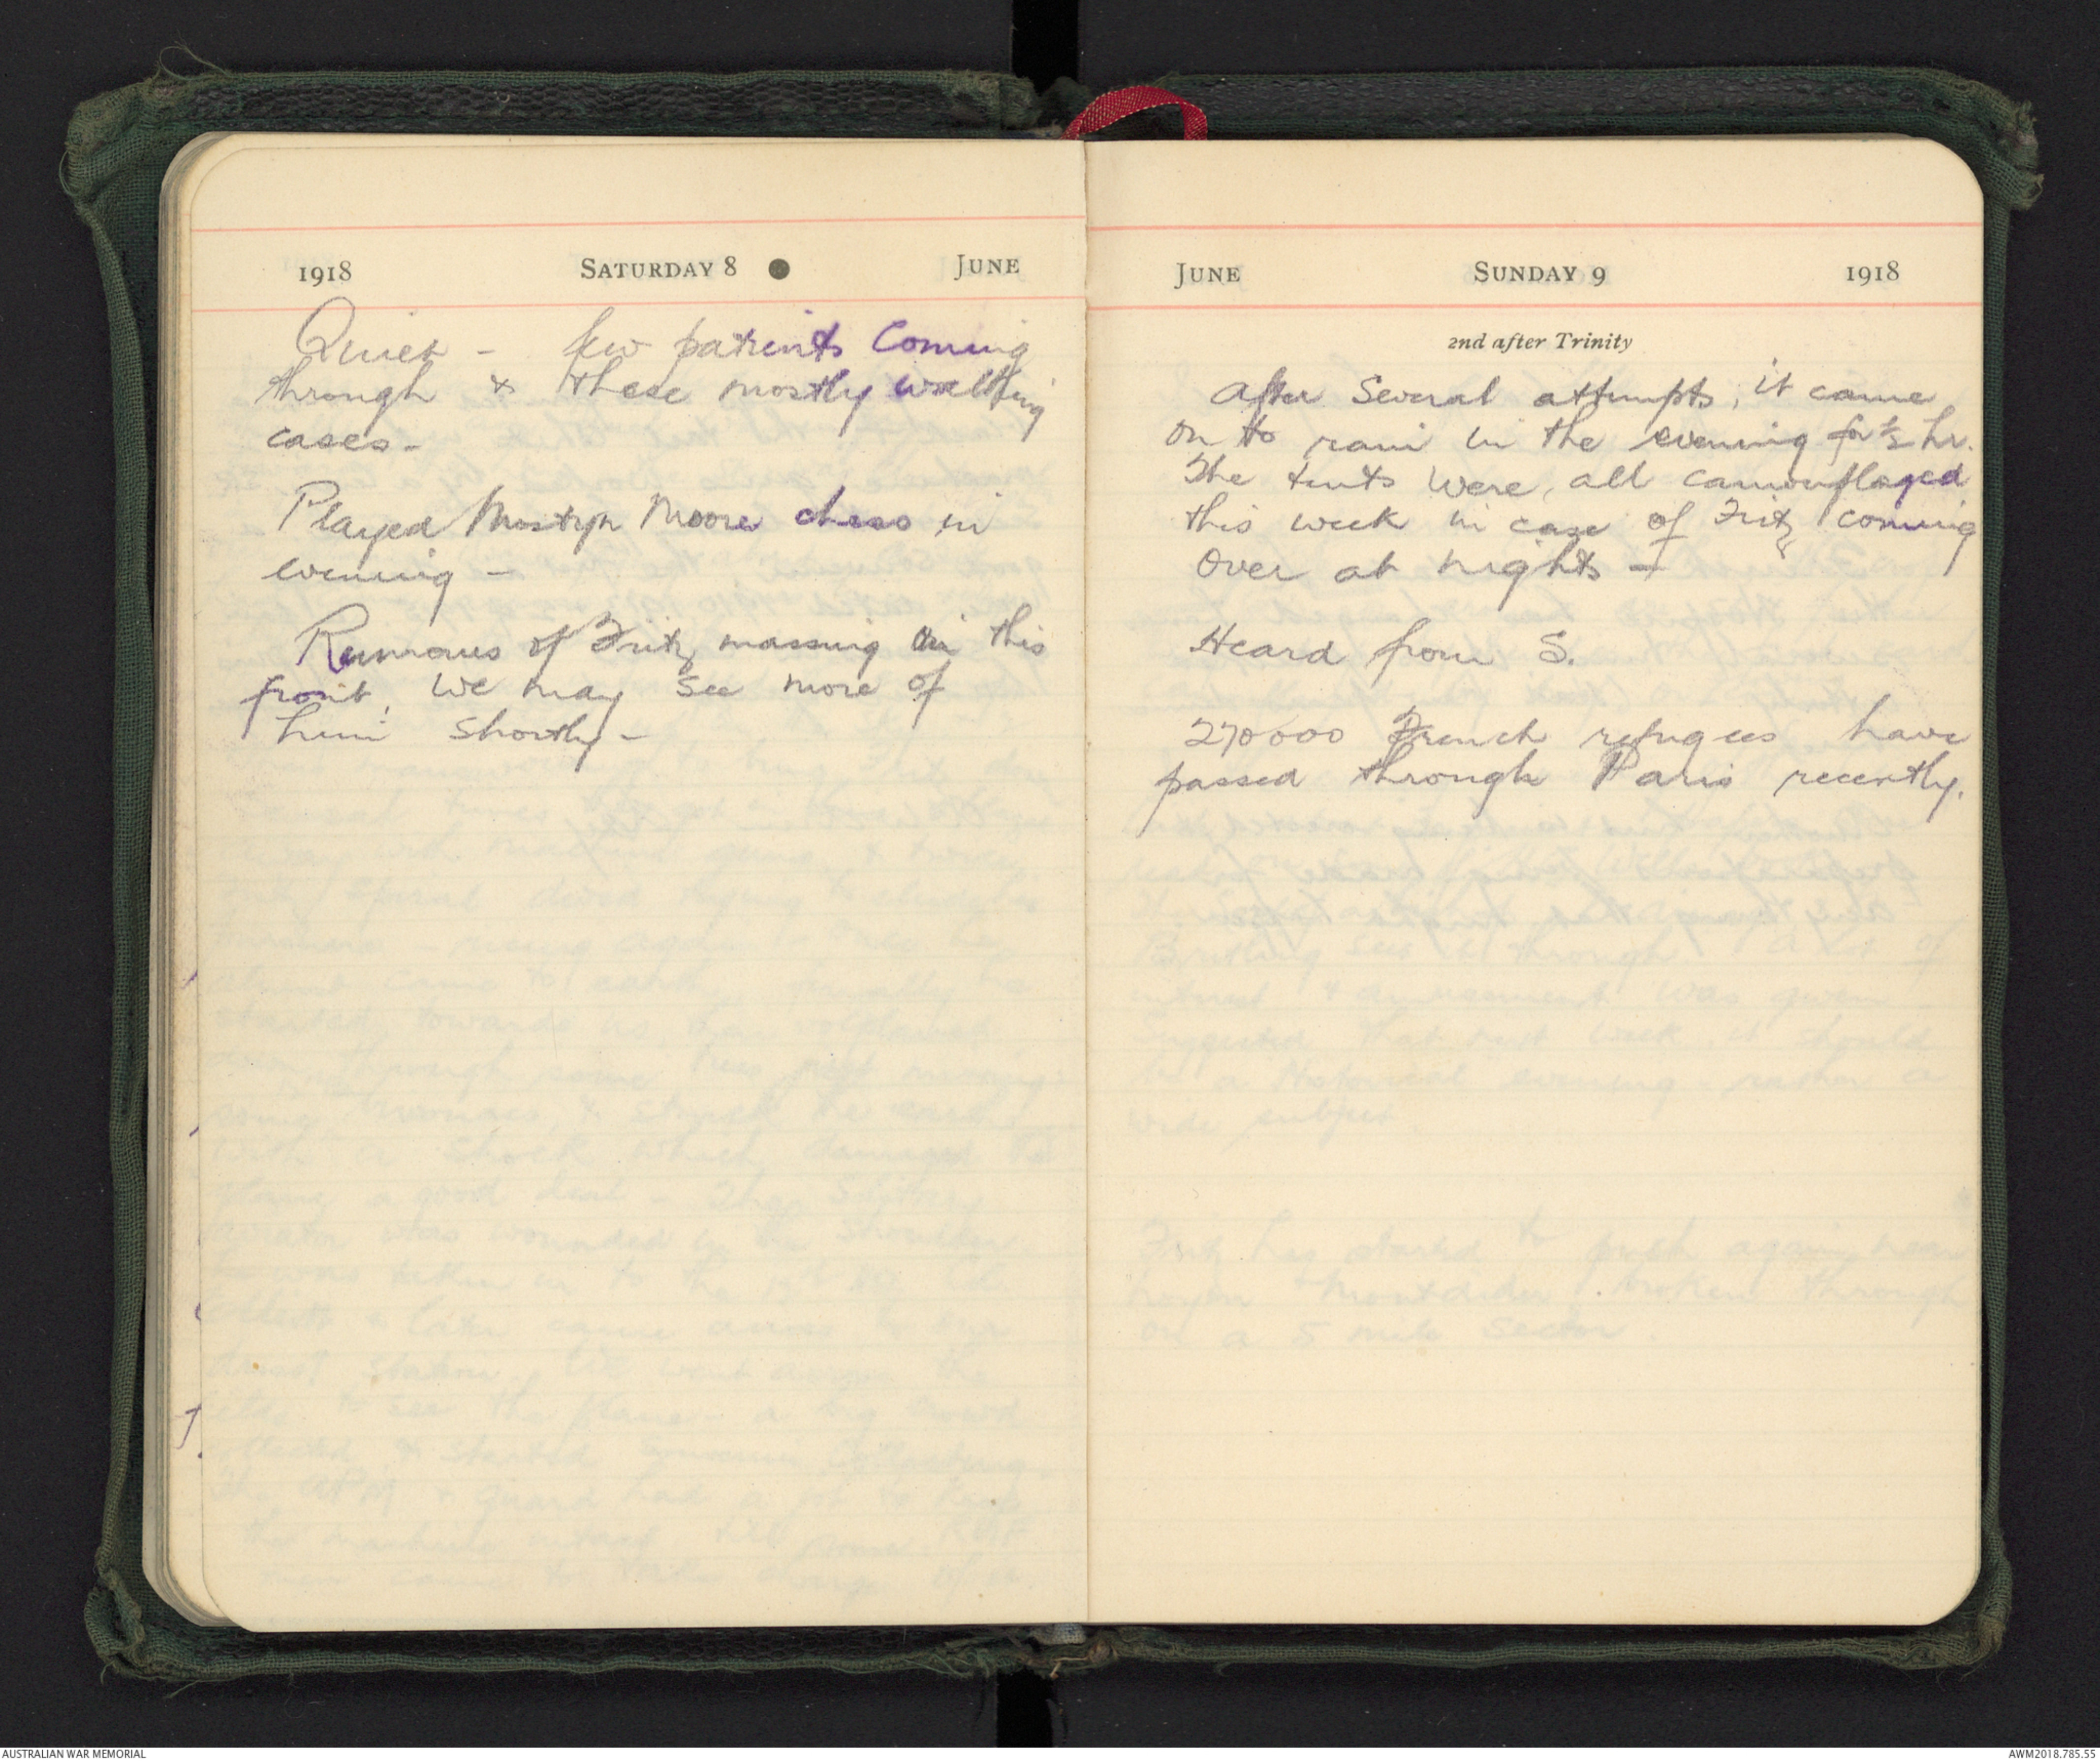 1918 SATURDAY 8 ● JUNE
Quiet - few patients Coming
through & these mostly walking
cases -
Played Mostyn Moore chess in
evening -
Rumours of Fritz massing on this
front, we may see more of
him shortly -
JUNE SUNDAY 9 1918
2nd after Trinity
After Several attempts, it came
on to rain in the evening for ½ hr.
The tents were, all camouflaged
this week in case of Fritz coming
over at nights -
Heard from S.
270000 French refugees have
passed through Paris recently.
AUSTRALIAN WAR MEMORIAL
AWM2018.785.55